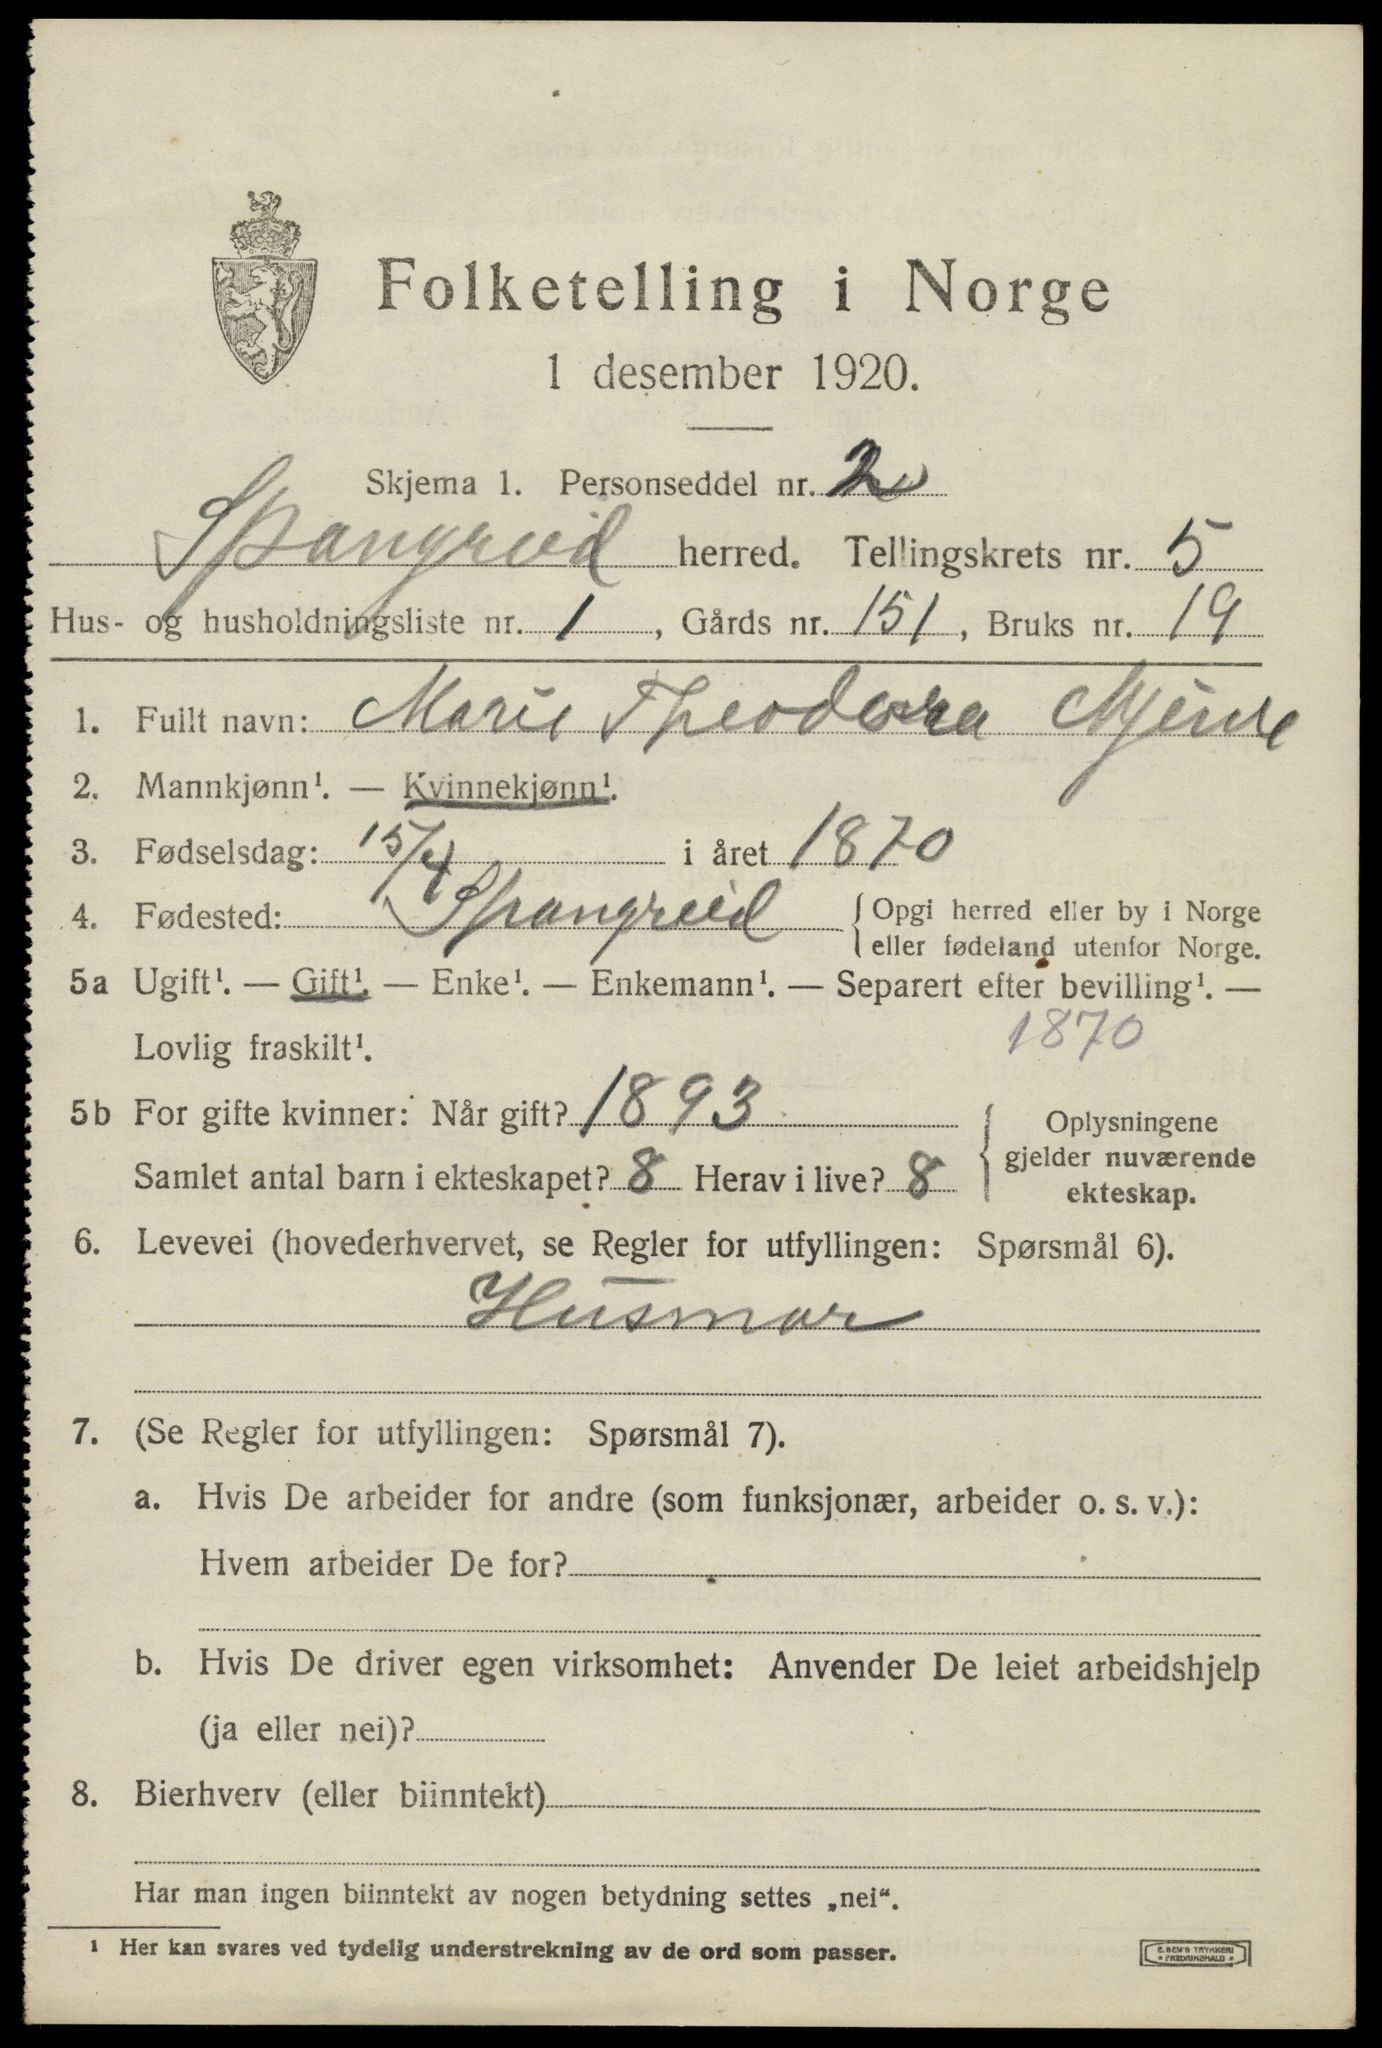 Folketelling i Norge
1 desember 1920.
Skjema 1. Personseddel nr. 2
Spangreid herred. Tellingskrets nr. 5
Hus- og husholdningsliste nr. 1, Gårds nr. 151, Bruks nr. 19
1. Fullt navn: Marie Theodora
2. Mannkjønn¹. — Kvinnekjønn¹.
3. Fødselsdag: 15/4 i året 1870
4. Fødested: Spangreid { Opgi herred eller by i Norge
eller fødeland utenfor Norge.
5a Ugift¹. — Gift¹. — Enke¹. — Enkemann¹. — Separert efter bevilling¹. —
Lovlig fraskilt¹. 1870
5b For gifte kvinner: Når gift? 1893
Samlet antal barn i ekteskapet? 8 Herav i live? 8
{ Oplysningene
gjelder nuværende
ekteskap.
6. Levevei (hovederhvervet, se Regler for utfyllingen: Spørsmål 6).
Husmor
7. (Se Regler for utfyllingen: Spørsmål 7).
a. Hvis De arbeider for andre (som funksjonær, arbeider o. s. v.):
Hvem arbeider De for?
b. Hvis De driver egen virksomhet: Anvender De leiet arbeidshjelp
(ja eller nei)?
8. Bierhverv (eller biinntekt)
Har man ingen biinntekt av nogen betydning settes „nei“.
¹ Her kan svares ved tydelig understrekning av de ord som passer.
E. SEM'S TRYKKERI
• FREDRIKSHALD •